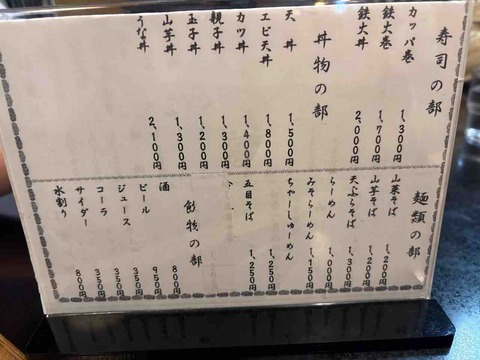 寿司の部
カッパ巻 1,300円
鉄火巻 1,700円
鉄火丼 2,000円
丼物の部
天丼 1,500円
エビ天丼 1,800円
カツ丼 1,400円
親子丼 1,300円
玉子丼 1,200円
山芋丼 1,300円
うな丼 2,100円
麺類の部
山菜そば 1,200円
山芋そば 1,200円
天ぷらそば 1,300円
らーめん 1,000円
みそらーめん 1,150円
ちゃーしゅーめん 1,250円
五目そば 1,250円
飲物の部
酒 800円
ビール 950円
ジュース 350円
コーラ 350円
サイダー 350円
水割り 800円